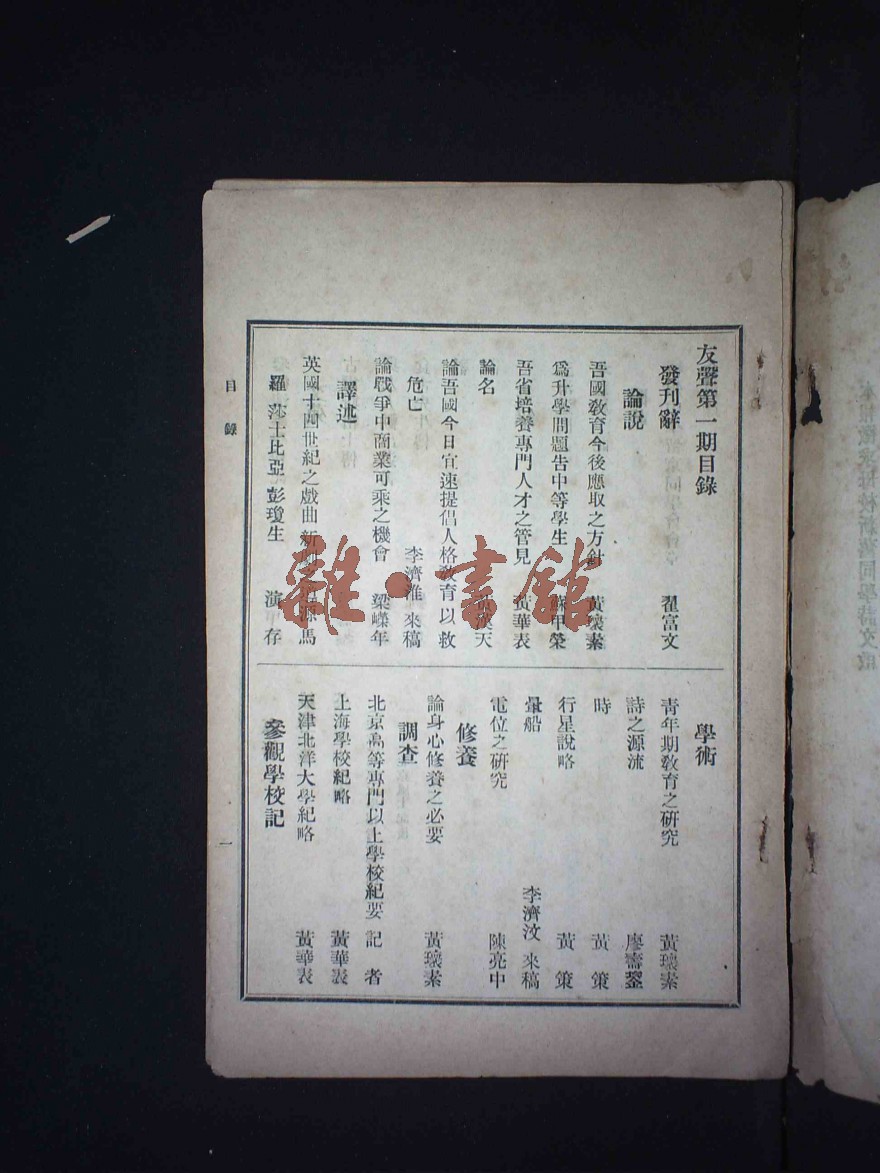 友聲第一期目錄
發刊辭 翟富文
論說
吾國教育今後應取之方針 黃瓌素
爲升學問題告中等學生 蘇甲榮
吾省培養專門人才之管見 黃華表
論名 漢天
論吾國今日宜速提倡人格教育以救
危亡 李濟淮 來稿
論戰爭中商業可乘之機會 梁嶸年
譯述
英國十四世紀之戲曲 新劇 源馬
羅 莎士比亞 彭瓊生 演存
學術
青年期教育之研究 黃瓌素
詩之源流 廖壽鋆
時 黃策
行星說略 黃策
暈船 李濟汶 來稿
電位之研究 陳亮中
修養
論身心修養之必要 黃瓌素
調查
北京高等專門以上學校紀要 記者
上海學校紀略 黃華表
天津北洋大學紀略 黃華表
參觀學校記
目錄
一
雜·書館